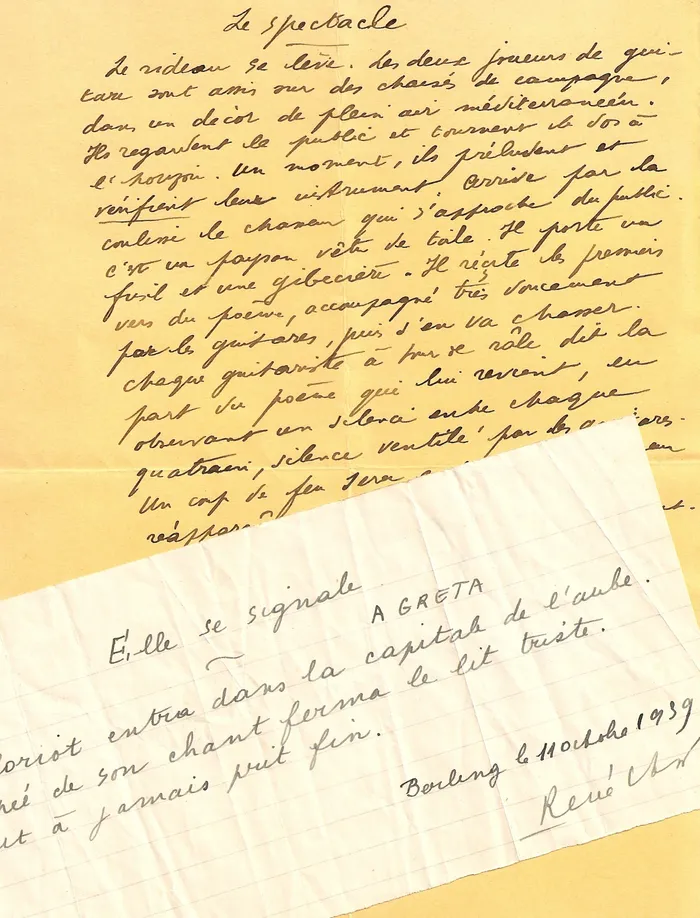 Le spectacle
Le rideau se lève. Les deux joueurs de gui-
tare sont assis sur des chaises de campagne,
dans un décor de plein air méditerranéen.
Ils regardent le public et tournent le dos à
l'horizon. Un moment, ils préludent et
vérifient leur instrument. Arrive par la
coulisse le chasseur qui s'approche du public.
c'est un paysan vêtu de toile. Il porte un
fusil et une gibecière. Il récite les premiers
vers du poème, accompagné très doucement
par les guitares, puis s'en va chasser.
Chaque guitariste à tour de rôle dit la
part du poème qui lui revient, en
observant un silence entre chaque
quatrain, silence ventilé par les guitares.
Un coup de feu sera
réappara
Elle se signale
A GRETA
loriot entra dans la capitale de l'aube.
pée de son chant ferma le lit triste.
ut à jamais prit fin.
Berling le 11 octobre 1939
René Char